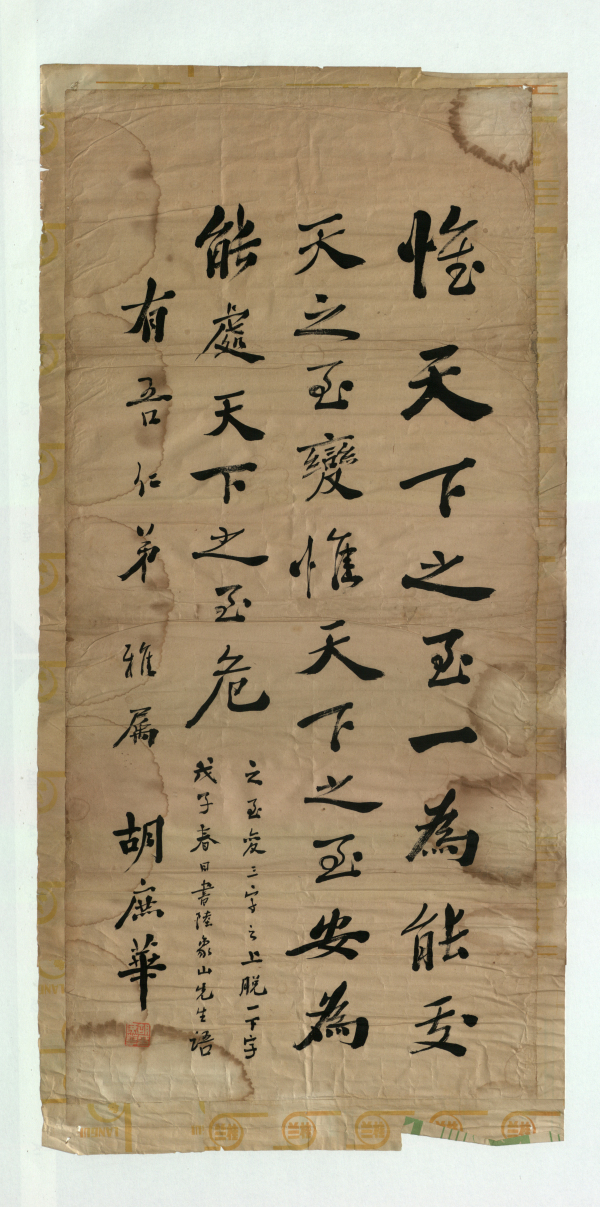 惟天下之至一為能处
天之至變惟天下之至安為
能處天下之至危
之至变三字之上脫一下字
戊子春日書陸象山先生語
有吾仁弟雅属 胡庶華